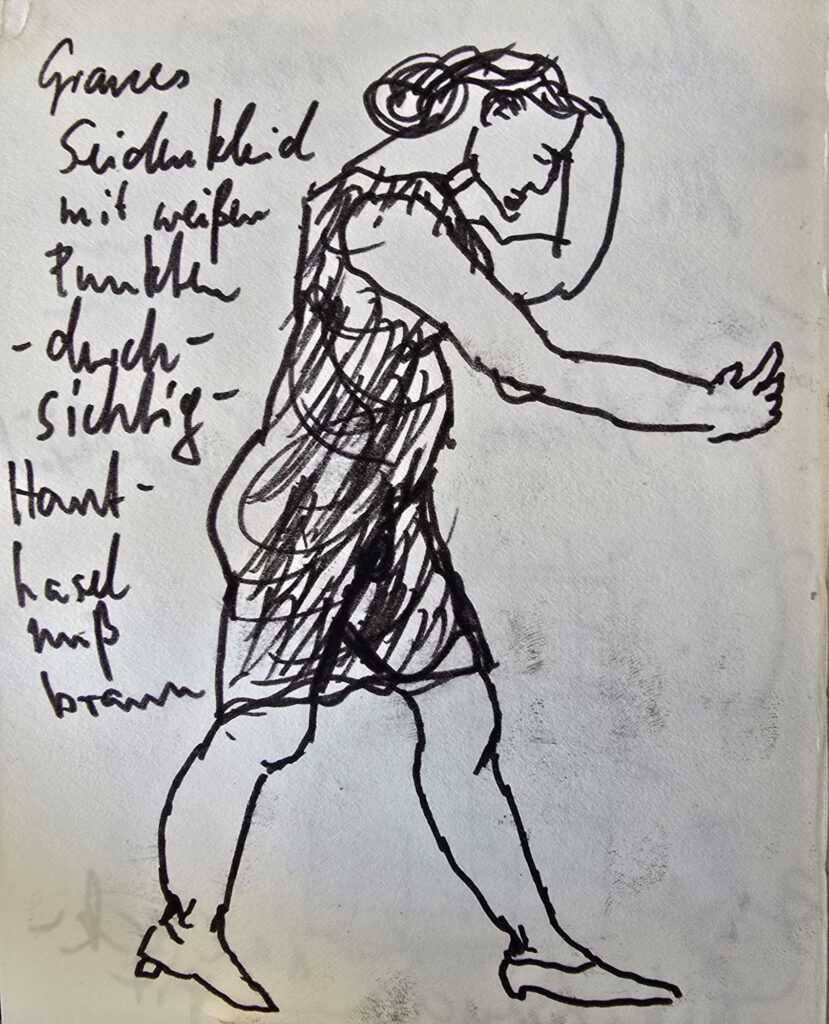 Graues
Seidenkleid
mit weißen
Punkten
-durch-
sichtig-
Haut-
hasel
nuß
braun